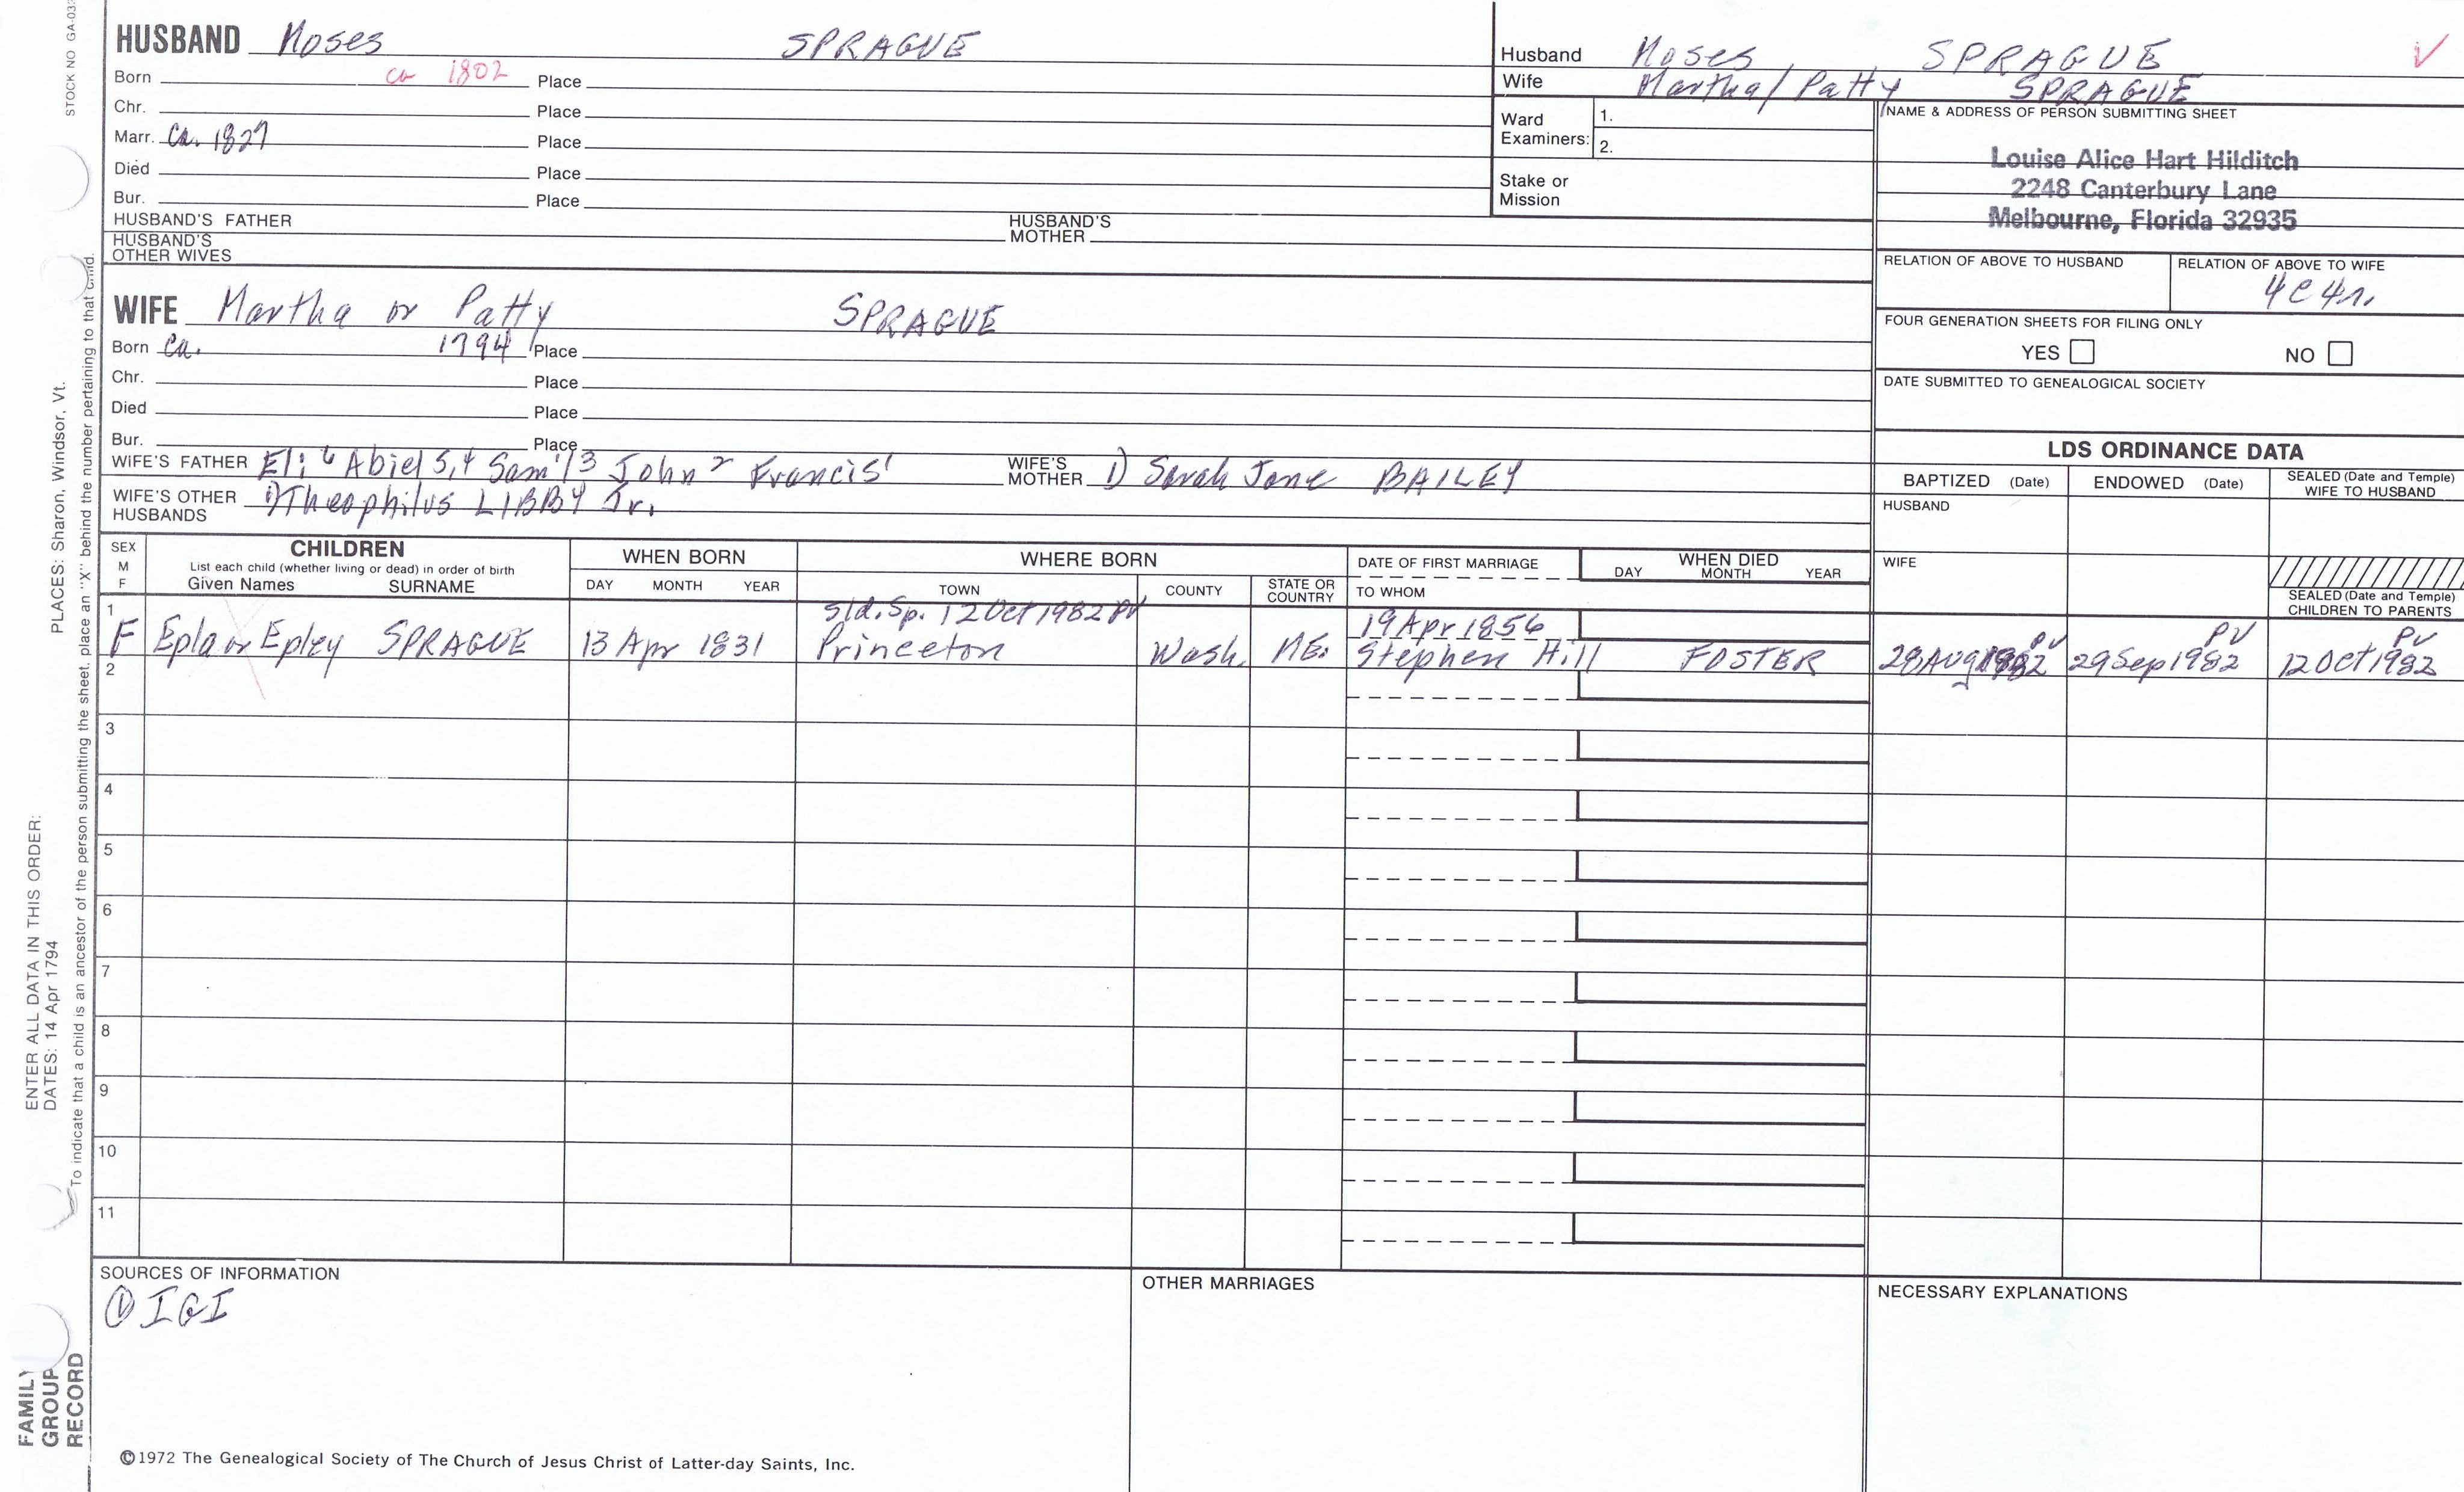 STOCK NO GA-033
HUSBAND Moses SPRAGUE
Born ca 1802 Place
Chr. Place
Marr. Ca. 1827 Place
Died Place
Bur. Place
HUSBAND'S FATHER
HUSBAND'S MOTHER
HUSBAND'S OTHER WIVES
Husband Moses SPRAGUE ✓
Wife Martha/Patty SPRAGUE
Ward Examiners: 1.
2.
Stake or Mission
NAME & ADDRESS OF PERSON SUBMITTING SHEET
Louise Alice Hart Hilditch
2248 Canterbury Lane
Melbourne, Florida 32935
RELATION OF ABOVE TO HUSBAND
RELATION OF ABOVE TO WIFE
4C4r.
FOUR GENERATION SHEETS FOR FILING ONLY
YES NO
DATE SUBMITTED TO GENEALOGICAL SOCIETY
WIFE Martha or Patty SPRAGUE
Born Ca. 1794 Place
Chr. Place
Died Place
Bur. Place
WIFE'S FATHER Eli 6 Abiel 5,4 Sam'l 3 John 2 Francis 1
WIFE'S MOTHER 1) Sarah Jane BAILEY
WIFE'S OTHER HUSBANDS 1) Theophilus LIBBY Jr.
LDS ORDINANCE DATA
BAPTIZED (Date) ENDOWED (Date) SEALED (Date and Temple) WIFE TO HUSBAND
HUSBAND
WIFE
SEALED (Date and Temple) CHILDREN TO PARENTS
SEX M F
CHILDREN
List each child (whether living or dead) in order of birth
Given Names SURNAME
WHEN BORN
DAY MONTH YEAR
WHERE BORN
TOWN COUNTY STATE OR COUNTRY
DATE OF FIRST MARRIAGE
TO WHOM
WHEN DIED
DAY MONTH YEAR
Sld. Sp. 12 Oct 1982 PV
19 Apr 1856
PV PV PV
1 F Epla or Epley SPRAGUE 13 Apr 1831 Princeton Wash. ME. Stephen Hill FOSTER 28 Aug 1982 29 Sep 1982 12 Oct 1982
2
3
4
5
6
7
8
9
10
11
SOURCES OF INFORMATION
① IGI
OTHER MARRIAGES
NECESSARY EXPLANATIONS
©1972 The Genealogical Society of The Church of Jesus Christ of Latter-day Saints, Inc.
FAMILY GROUP RECORD
ENTER ALL DATA IN THIS ORDER:
DATES: 14 Apr 1794
PLACES: Sharon, Windsor, Vt.
To indicate that a child is an ancestor of the person submitting the sheet, place an "X" behind the number pertaining to that child.